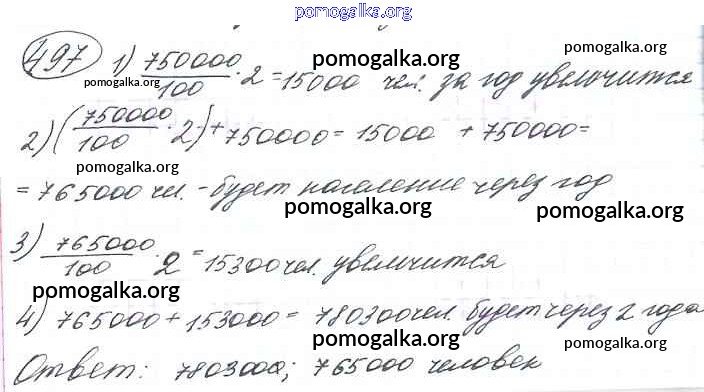 pomogalka.org
497 1) 750000/100 · 2 = 15000 чел. за год увеличится
pomogalka.org pomogalka.org
pomogalka.org pomogalka.org
2) (750000/100 · 2) + 750000 = 15000 + 750000 =
pomogalka.org
= 765000 чел. - будет население через год
pomogalka.org pomogalka.org
3) 765000/100 · 2 = 15300 чел. увеличится
pomogalka.org pomogalka.org
4) 765000 + 153000 = 780300 чел. будет через 2 года
pomogalka.org pomogalka.org
Ответ: 7803000; 765000 человек